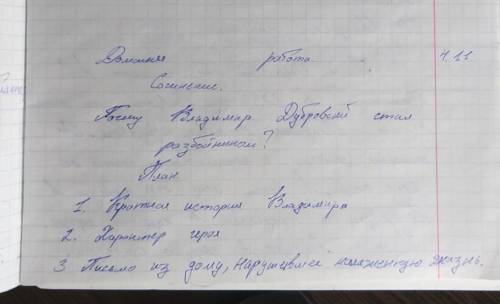 Домашняя работа 4.11
Сочинение.
Почему Владимир Дубровский стал
разбойником?
План
1. Краткая история Владимира
2. Характер героя
3 Письмо из дому, нарушевшее налаженную жизнь.